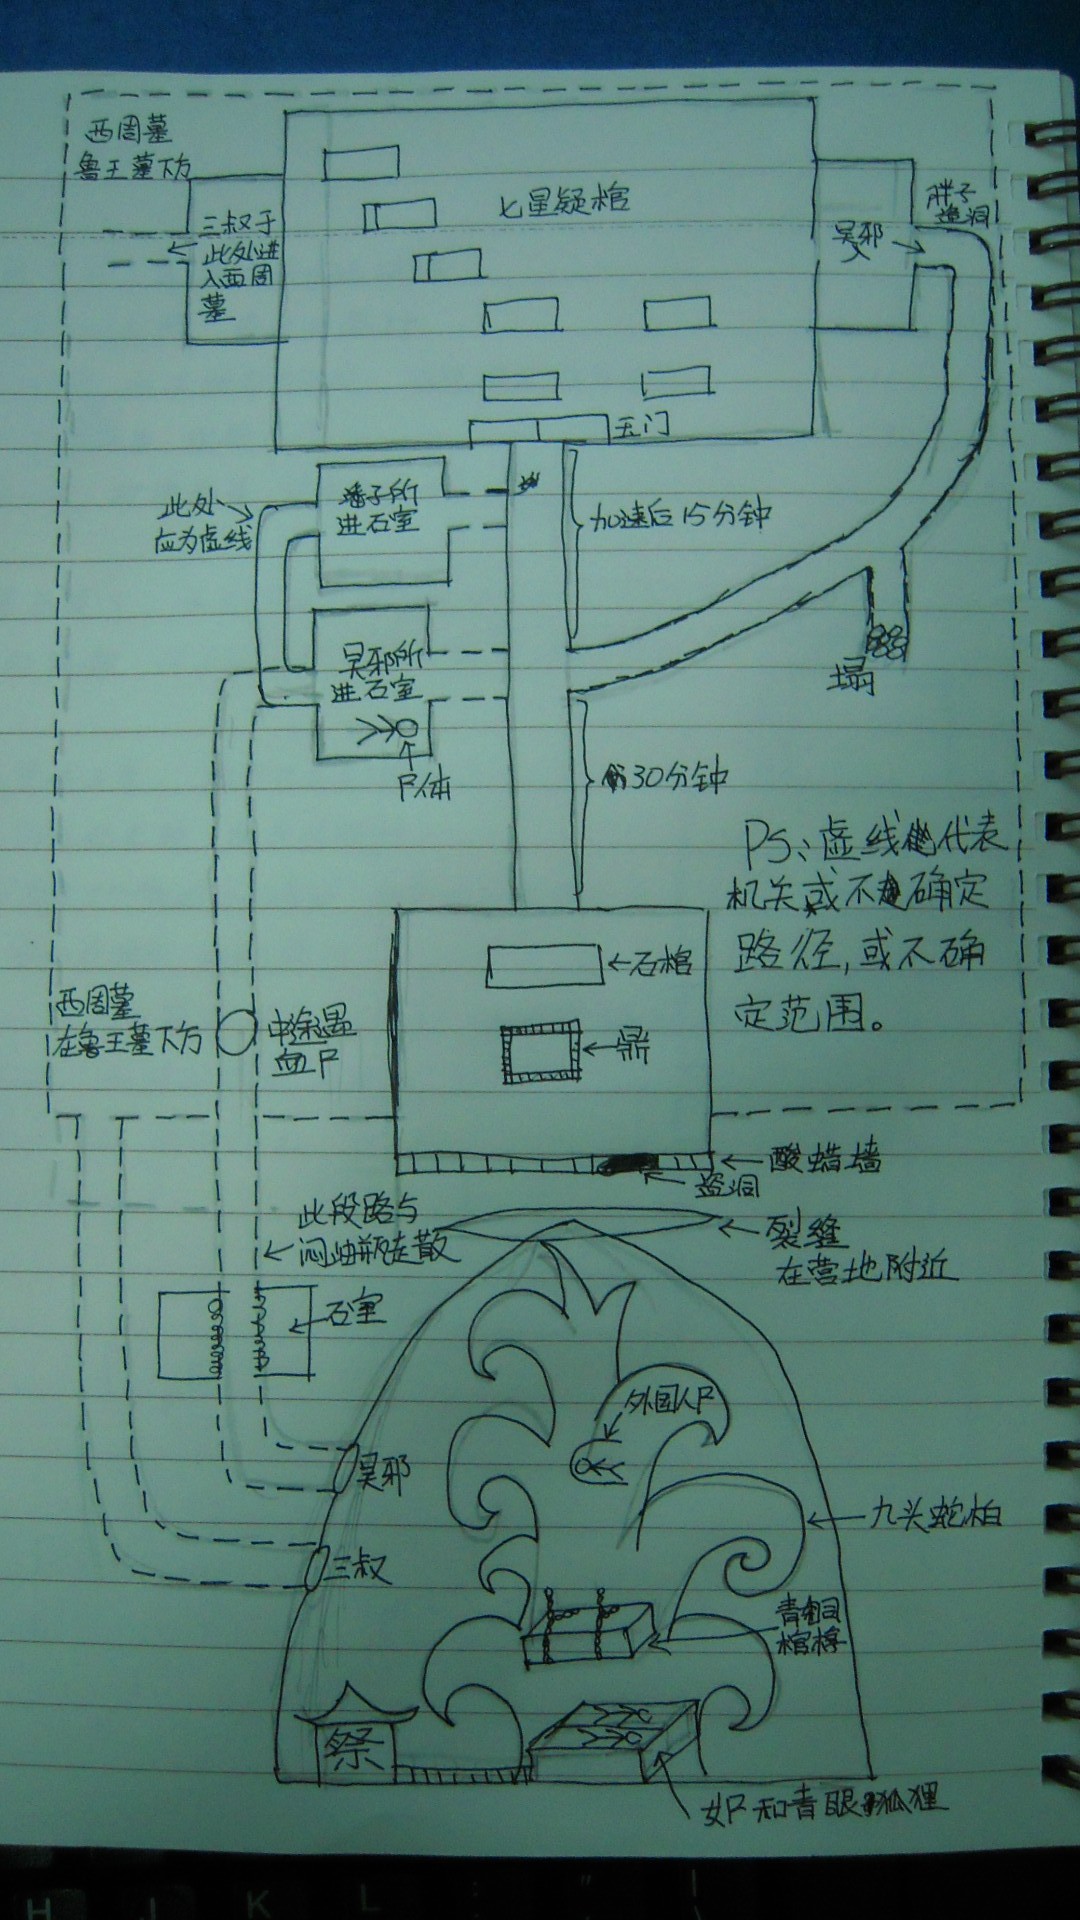 西周墓
鲁王墓下方
三叔于
此处进
入西周
墓
七星疑棺
吴邪
入
胖子
盗洞
玉门
潘子所
进石室
此处
应为虚线
加速后15分钟
吴邪所
进石室
尸体
塌
30分钟
PS:虚线代表
机关或不确定
路径,或不确
定范围。
石棺
鼎
西周墓
在鲁王墓下方
中途遇
血尸
酸蜡墙
盗洞
此段路与
闷油瓶走散
裂缝
在营地附近
石室
外国人尸
吴邪
九头蛇柏
三叔
青铜
棺椁
祭
女尸和青眼狐狸
H J K L : "